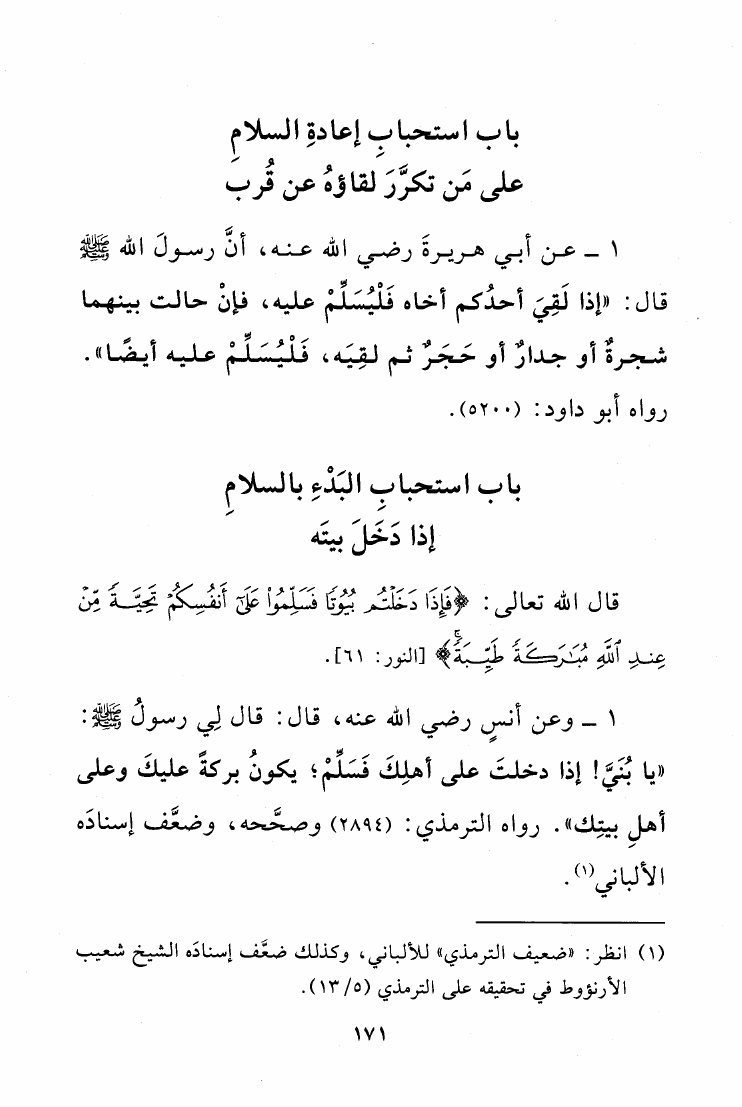 باب استحبابِ إعادةِ السلامِ
على مَن تكرَّرَ لقاؤهُ عن قُرب
١ ـ عـن أبـي هـريـرةَ رضـي الله عـنـه، أنَّ رسـولَ الله ﷺ
قال: «إذا لَقِيَ أحدُكم أخاه فَلْيُسَلِّمْ عليه، فإنْ حالت بينهما
شجرةٌ أو جدارٌ أو حَجَرٌ ثم لقِيَه، فَلْيُسَلِّمْ عليه أيضًا».
رواه أبو داود: (٥٢٠٠).
باب استحبابِ البَدْءِ بالسلامِ
إذا دَخَلَ بيتَه
قال الله تعالى: ﴿فَإِذَا دَخَلْتُم بُيُوتًا فَسَلِّمُوا۟ عَلَىٰٓ أَنفُسِكُمْ تَحِيَّةً مِّنْ
عِندِ ٱللَّهِ مُبَٰرَكَةً طَيِّبَةً ۚ﴾ [النور: ٦١].
١ ـ وعن أنسٍ رضي الله عنه، قال: قال لِي رسولُ ﷺ:
«يا بُنَيَّ! إذا دخلتَ على أهلِكَ فَسَلِّمْ؛ يكونُ بركةً عليكَ وعلى
أهلِ بيتِك». رواه الترمذي: (٢٨٩٤) وصحَّحه، وضعَّف إسنادَه
الألباني(١).
(١) انظر: «ضعيف الترمذي» للألباني، وكذلك ضعَّف إسنادَه الشيخ شعيب
الأرنؤوط في تحقيقه على الترمذي (٥/ ١٣).
١٧١